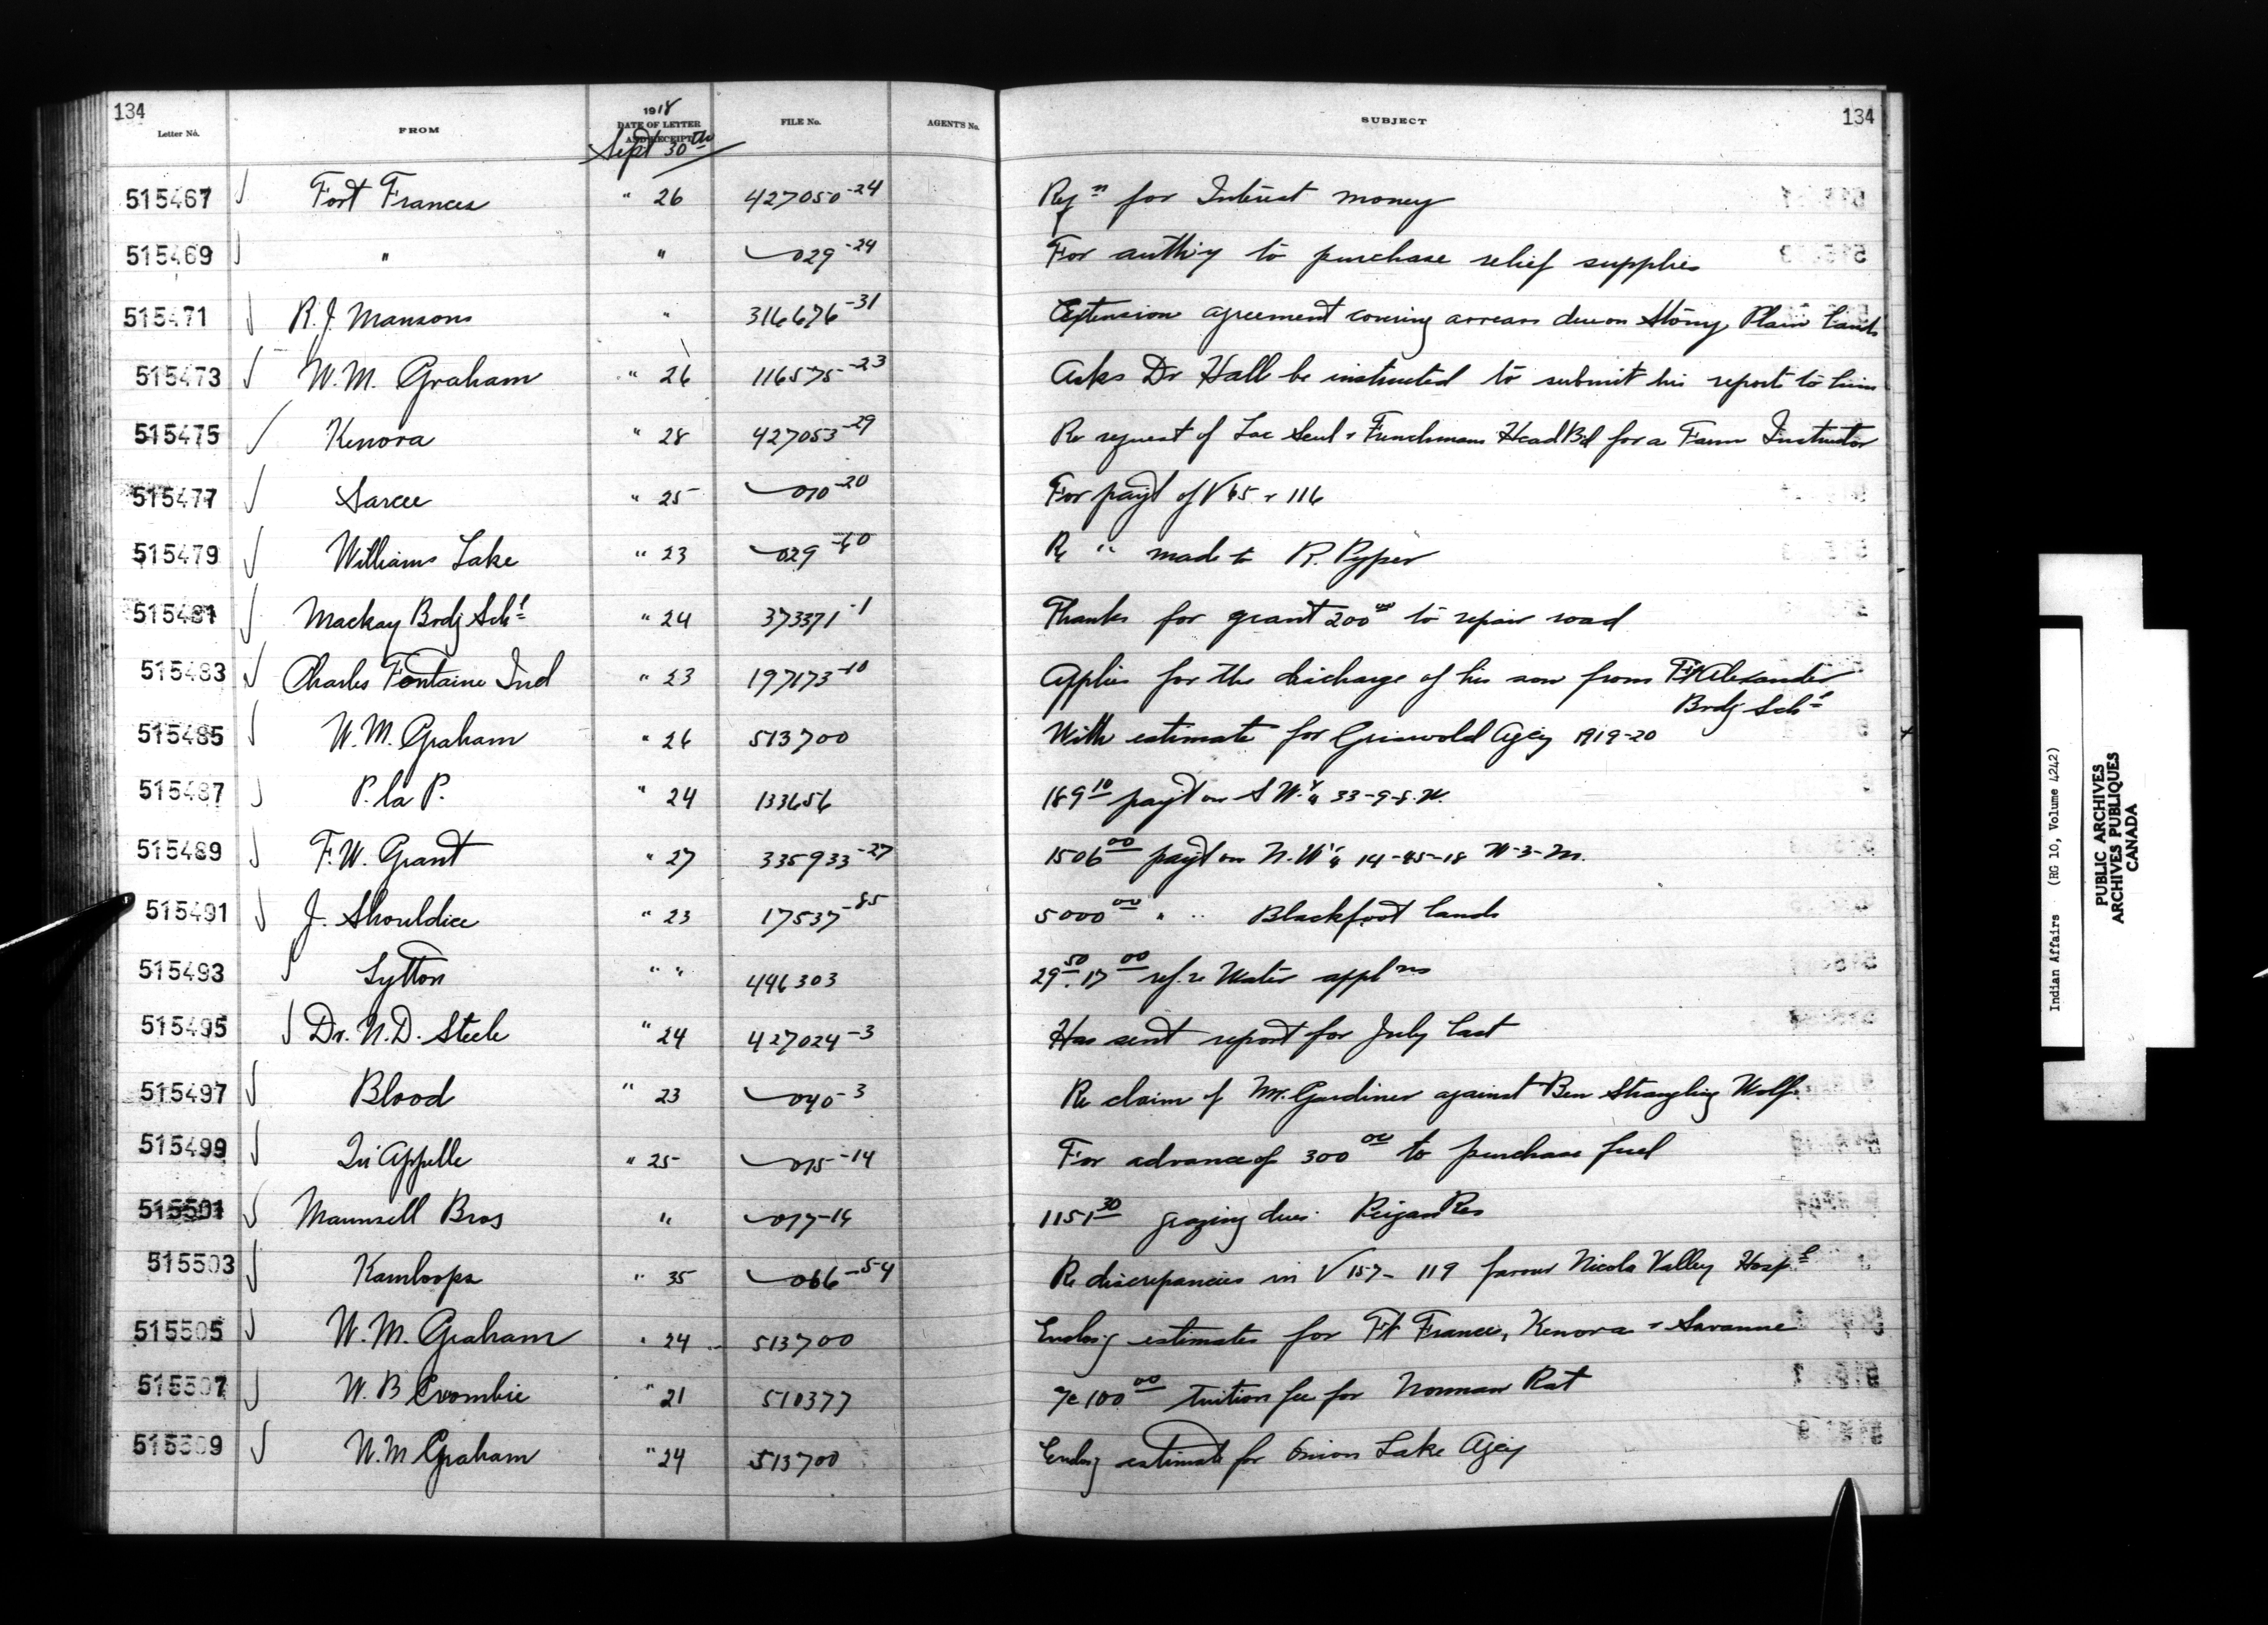 134
Letter No. FROM 1918 DATE OF LETTER AND RECEIPT FILE No. AGENT'S No. SUBJECT 134
Sept 30th
515467 Fort Frances " 26 427050-24 Reqn for Interest money
515469 " " 029-24 For auth'y to purchase relief supplies
515471 R.J. Mansons " 316676-31 Extension agreement covering arrears due on Stony Plain lands
515473 W.M. Graham " 26 116575-23 Asks Dr Hall be instructed to submit his report to him
515475 Kenora " 28 427053-29 Re request of Lac Seul & Frenchmans Head Bd for a Farm Instructor
515477 Sarcee " 25 010-20 For payt of V 65 & 116
515479 Williams Lake " 23 029 Re " made to R. Pyper
515481 Mackay Brdg Schl " 24 373371-1 Thanks for grant 200 00 to repair road
515483 Charles Fontaine Ind " 23 197173-10 Applies for the discharge of his son from Ft Alexander
Brdg Schl
515485 W.M. Graham " 26 513700 With estimate for Griswold Agcy 1919-20
515487 P. la P. " 24 133656 189 10 payt on S W. 1/4 33-9-8.W.
515489 F.W. Grant " 27 335933-27 1506 00 payt on N.W 1/4 14-45-18 W-3-M.
515491 J. Shouldice " 23 17537-85 5000 00 " " Blackfoot lands
515493 Lytton " " 496303 29 50. 17 00 ref. re Water appl'ns
515495 Dr. N.D. Steele " 24 427024-3 Has sent report for July last
515497 Blood " 23 040-3 Re claim of Mr. Gardiner against Ben Strangling Wolf.
515499 Qu'Appelle " 25 015-14 For advance of 300 00 to purchase fuel
515501 Maunsell Bros " 017-14 1151 30 grazing dues. Peigan Res
515503 Kamloops " 35 066-54 Re discrepancies in V 157- 119 favour Nicola Valley Hospl
515505 W.M. Graham " 24 513700 Enclosg estimates for Ft Frances, Kenora & Savanne
515507 W. B Crombie " 21 510377 a/c 100 00 tuition fee for Norman Rat
515509 W.M Graham " 24 513700 Enclosg estimate for Onion Lake Agcy
Indian Affairs (RG 10, Volume 4242)
PUBLIC ARCHIVES
ARCHIVES PUBLIQUES
CANADA